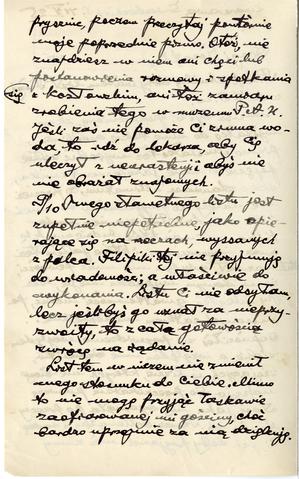 prysznic, poczem przeczytaj powtórnie
moje poprzednie pismo. Otóż, nie
znajdziesz w niem ani chęci lub
postanowienia rozmowy i spotkania
się z Kozłowskim, ani też zamiaru
zrobienia tego w muzeum P. i H.
Jeśli zaś nie pomoże Ci zimna wo-
da, to idź do lekarza, aby Cię
uleczył z neurastenji abyś nie
nie obrażał znajomych.
Twego listu jest
zupełnie niepotrzebne, jako opie-
rające się na rzeczach, wyssanych
z palca. Filipiki tej nie przyjmuję
do wiadomości, a właściwie do
wykonania. Listu Ci nie odsyłam,
lecz jeślibyś go uznał za nieprzy-
zwoity, to z całą gotowością
zwrócę na żądanie.
List ten w niczem nie zmienił
mego stosunku do Ciebie. Mimo
to nie mogę przyjąć łaskawie
zaofiarowanej mi gościny, choć
bardzo uprzejmie za nią dziękuję.